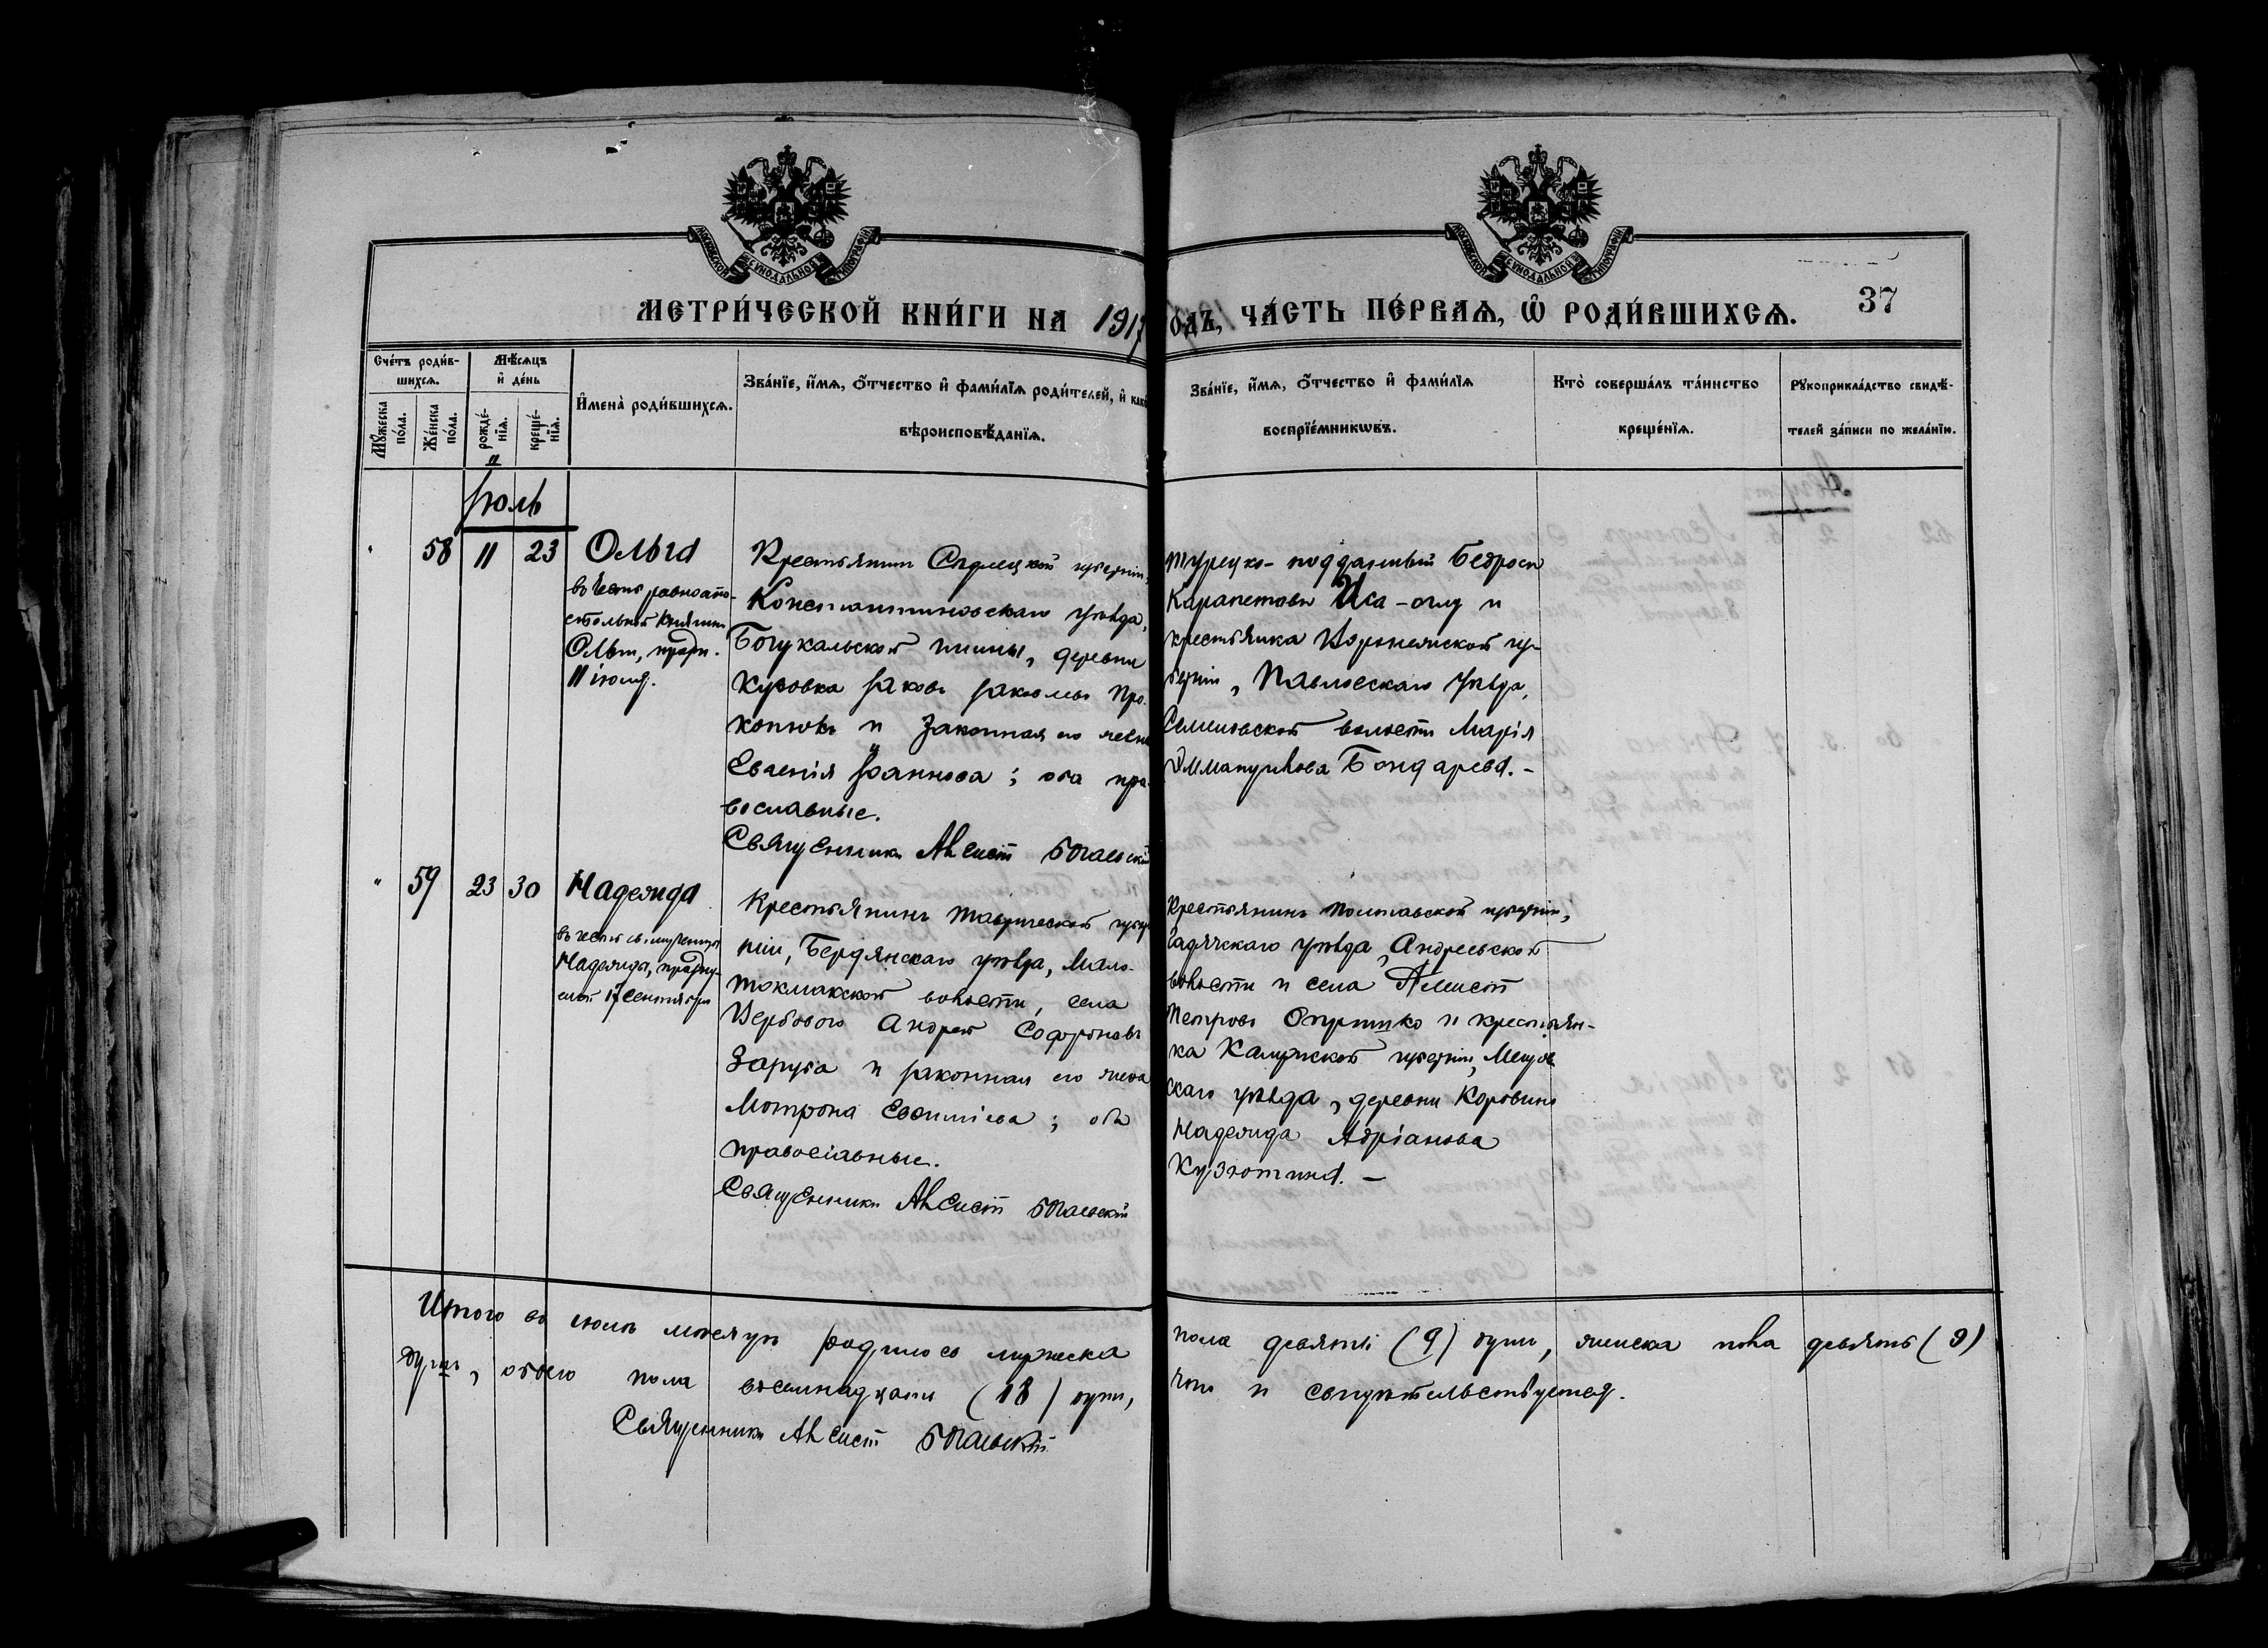 МОСКОВСКОЙ СѴНОДАЛЬНОЙ ТИПОГРАФІИ
МОСКОВСКОЙ СѴНОДАЛЬНОЙ ТИПОГРАФІИ
МЕТРИ́ЧЕСКОЙ КНИ́ГИ НА 1917
ОДЪ, ЧА́СТЬ ПЕ́РВАѦ, Ѽ РОДИ́ВШИХСѦ.
37
Сче́тъ роди́в-
шихсѧ.
Мꙋ́жеска по́ла.
Же́нска по́ла.
Мѣ́сѧцъ
и҆ де́нь
рожде́-
нїѧ.
креще́-
нїѧ.
И҆мена̀ роди́вшихсѧ.
Зва́нїе, и҆́мѧ, ѻ҆́тчество и҆ фами́лїѧ роди́телей, и҆
вѣроисповѣ́данїѧ.
Зва́нїе, и҆́мѧ, ѻ҆́тчество и҆ фами́лїѧ
воспрїе́мникѡвъ.
Кто̀ соверша́лъ та́инство
креще́нїѧ.
Рꙋкоприкла́дство свидѣ́-
телей за́писи по жела́нїю.
Іюль
58 11 23
Ольга
въ честь равноапо-
стольной княгини
Ольги, праздн.
11 іюля.
Крестьянинъ Сѣдлецкой губерніи,
Константиновскаго уѣзда,
Богукальской гмины, деревни
Куровка Іаковъ Іаковлевъ Про-
коповъ и законная его жена
Евгенія Іоаннова; оба пра-
вославные.
Священникъ Алексій
Турецко-подданный Бедросъ
Карапетовъ Иса-оглу и
крестьянка Воронежской гу-
берніи, Павловскаго уѣзда,
Семеновской волости Марія
Эммануилова Бондарева.-
59 23 30
Надежда
въ честь св. мученицы
Надежды, праздну-
емой 17 сентября
Крестьянинъ Таврической губер-
ніи, Бердянскаго уѣзда, Мало-
токмакской волости, села
Вербового Андрей Софроновъ
Заруба и законная его жена
Мотрона Евѳиміева; оба
православные.
Священникъ Алексій
Крестьянинъ Полтавской губерніи,
Гадячскаго уѣзда, Андреевской
волости и села Алексій
Петровъ и крестьян-
ка Калужской губерніи, Мещов-
скаго уѣзда, деревни Коровино
Надежда Адріанова
Кузютина. —
Итого въ іюлѣ мѣсяцѣ родилось мужеска
пола девять (9) душъ, женска пола девять (9)
душъ, обоего пола восемнадцать (18) душъ,
что и свидѣтельствуется.
Священникъ Алексій